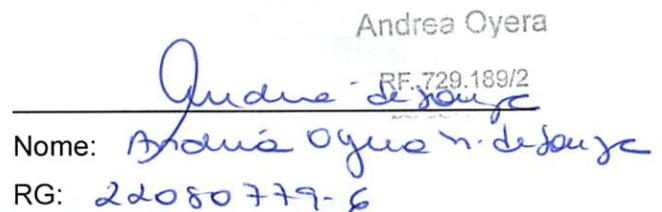 Andrea Oyera
RF. 729.189/2
Andrea de Souza
Nome: Andréa Oyera N. de Souza
RG: 22080779-6